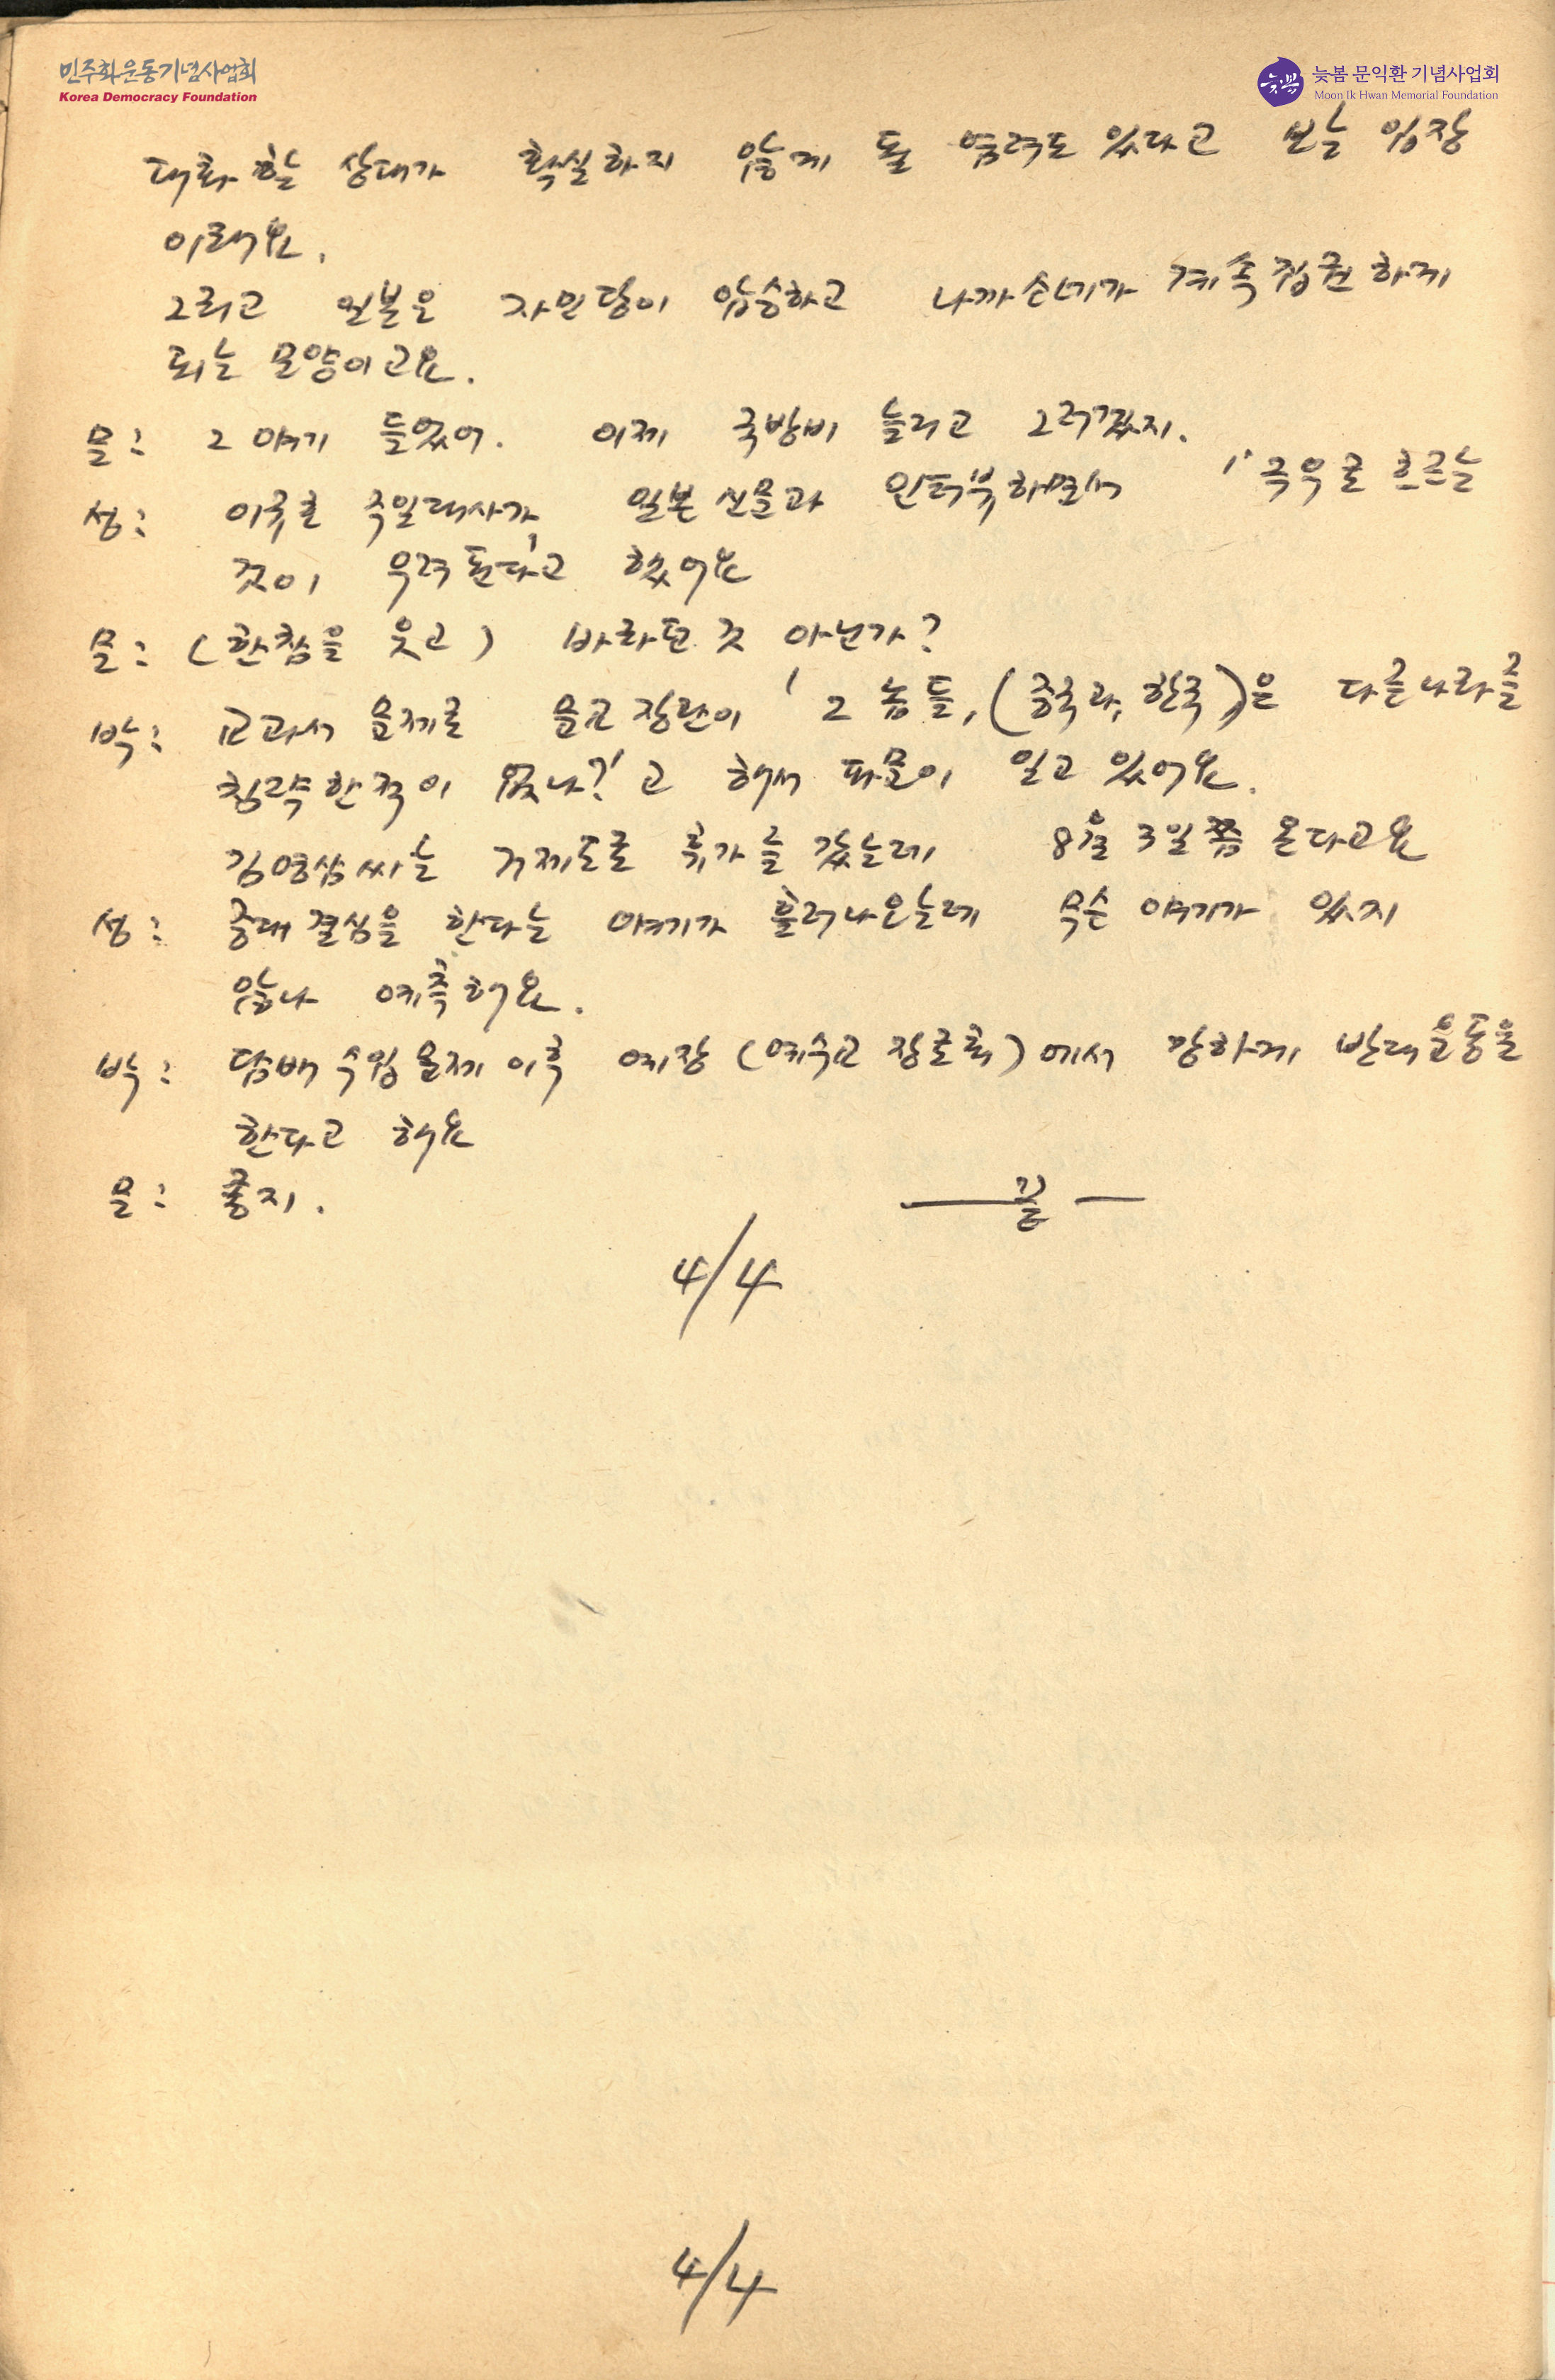 민주화운동기념사업회
Korea Democracy Foundation
늦봄
늦봄 문익환 기념사업회
Moon Ik Hwan Memorial Foundation
대화할 상대가 확실하지 않게 될 염려도 있다고 보는 입장
이래요.
그리고 일본은 자민당이 압승하고 나까소네가 계속 집권하게
되는 모양이고요.
문: 그 얘기 들었어. 이제 국방비 늘리고 그러겠지.
성: 이규호 주일대사가 일본 신문과 인터뷰하면서 "극우로 흐르는
것이 우려된다"고 했어요
문: (한참을 웃고) 바라던 것 아닌가?
박: 교과서 문제로 문교장관이 '그 놈들, (중국과, 한국)은 다른나라를
침략한적이 없나?'고 해서 파문이 일고 있어요.
김영삼씨는 거제도로 휴가를 갔는데 8월 3일쯤 온다고요
성: 중대결심을 한다는 얘기가 흘러나오는데 무슨 얘기가 있지
않나 예측해요.
박: 담배 수입 문제 이후 예장 (예수교 장로회)에서 강하게 반대운동을
한다고 해요
문: 좋지.
— 끝 —
4/4
4/4